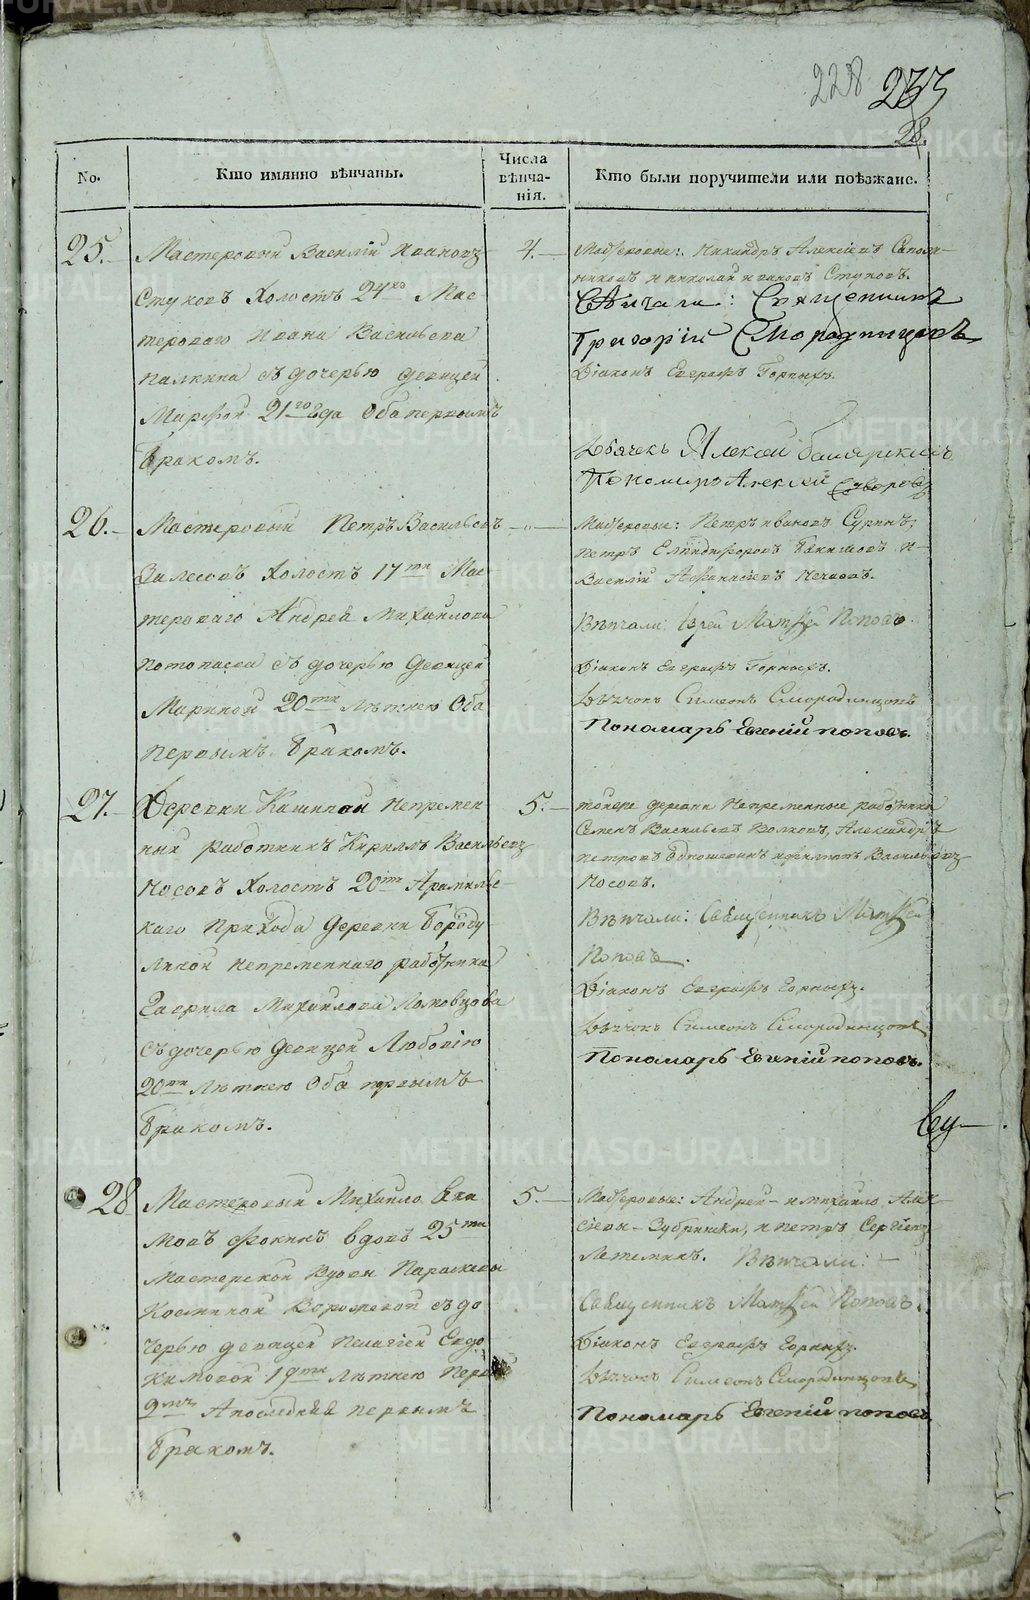 228 233
28.
No.
Кто имянно вѣнчаны.
Числа
вѣнча-
нія.
Кто были поручители или поѣзжане.
25.
Мастеровый Василій Ивановъ
Стуковъ холостъ 24хъ Мас-
тероваго Ивана Васильева
Палкина съ дочерью девицей
Марфой 21го года оба первымъ
бракомъ.
4.
Мастеровые: Никандръ Алексіевъ Сапож-
никовъ и николай ивановъ Стуковъ.
Вѣнчали: Священникъ
Григорій Смородинцовъ
Діаконъ Евграфъ Горныхъ.
Дьячекъ Алексей
Пономарь Алексій Суворовъ
26.
Мастеровый Петръ Васильевъ
Залесовъ холостъ 17ти Мас-
тероваго Андрея Михайлова
Потопаева съ дочерью девицей
Мариной 20ти лѣтнею Оба
первымъ бракомъ.
— „ —
Мастеровые: Петръ ивановъ Суринъ,
петръ и
Василій Афанасіевъ
Вѣнчали: Іерей Матѳей Поповъ.
Діаконъ Евграфъ Горныхъ.
Дьячокъ Симеонъ Смородинцовъ
Пономарь Евгеній поповъ.
27.
Деревни Кашиной Непремен
ный работникъ Кирилъ Васильевъ
Носовъ холостъ 20ти Арамильс-
каго прихода деревни Бороду-
линой непременнаго работника
Гаврила Михайлова Ломовцова
съ дочерью девицей Любовію
20ти лѣтнею Оба первымъ
бракомъ.
5.
тойже деревни Непременные работники
Семенъ Васильевъ Волковъ, Александръ
петровъ и филипъ Васильевъ
Носовъ.
Вѣнчали: Священникъ Матѳей
Поповъ.
Діаконъ Евграфъ Горныхъ.
Дьячокъ Симеонъ Смородинцовъ
Пономарь Евгеній поповъ.
28
Мастеровый Михайло Еки
мовъ Фокинъ вдовъ 25ти
мастерской вдовы Параскевы
Косминой съ до
черью девицей Пелагіей Евдо
кимовой 19ти лѣтнею Первый
2мъ А последняя первымъ
бракомъ.
5.
Мастеровые: Андрей и михайло Алек
сіевы Зубрицки, и петръ Сергіевъ
Вѣнчали:
Священникъ Матѳей Поповъ.
Діаконъ Евграфъ Горныхъ.
Дьячокъ Симеонъ Смородинцовъ
Пономарь Евгеній поповъ
METRIKI.GASO-URAL.RU